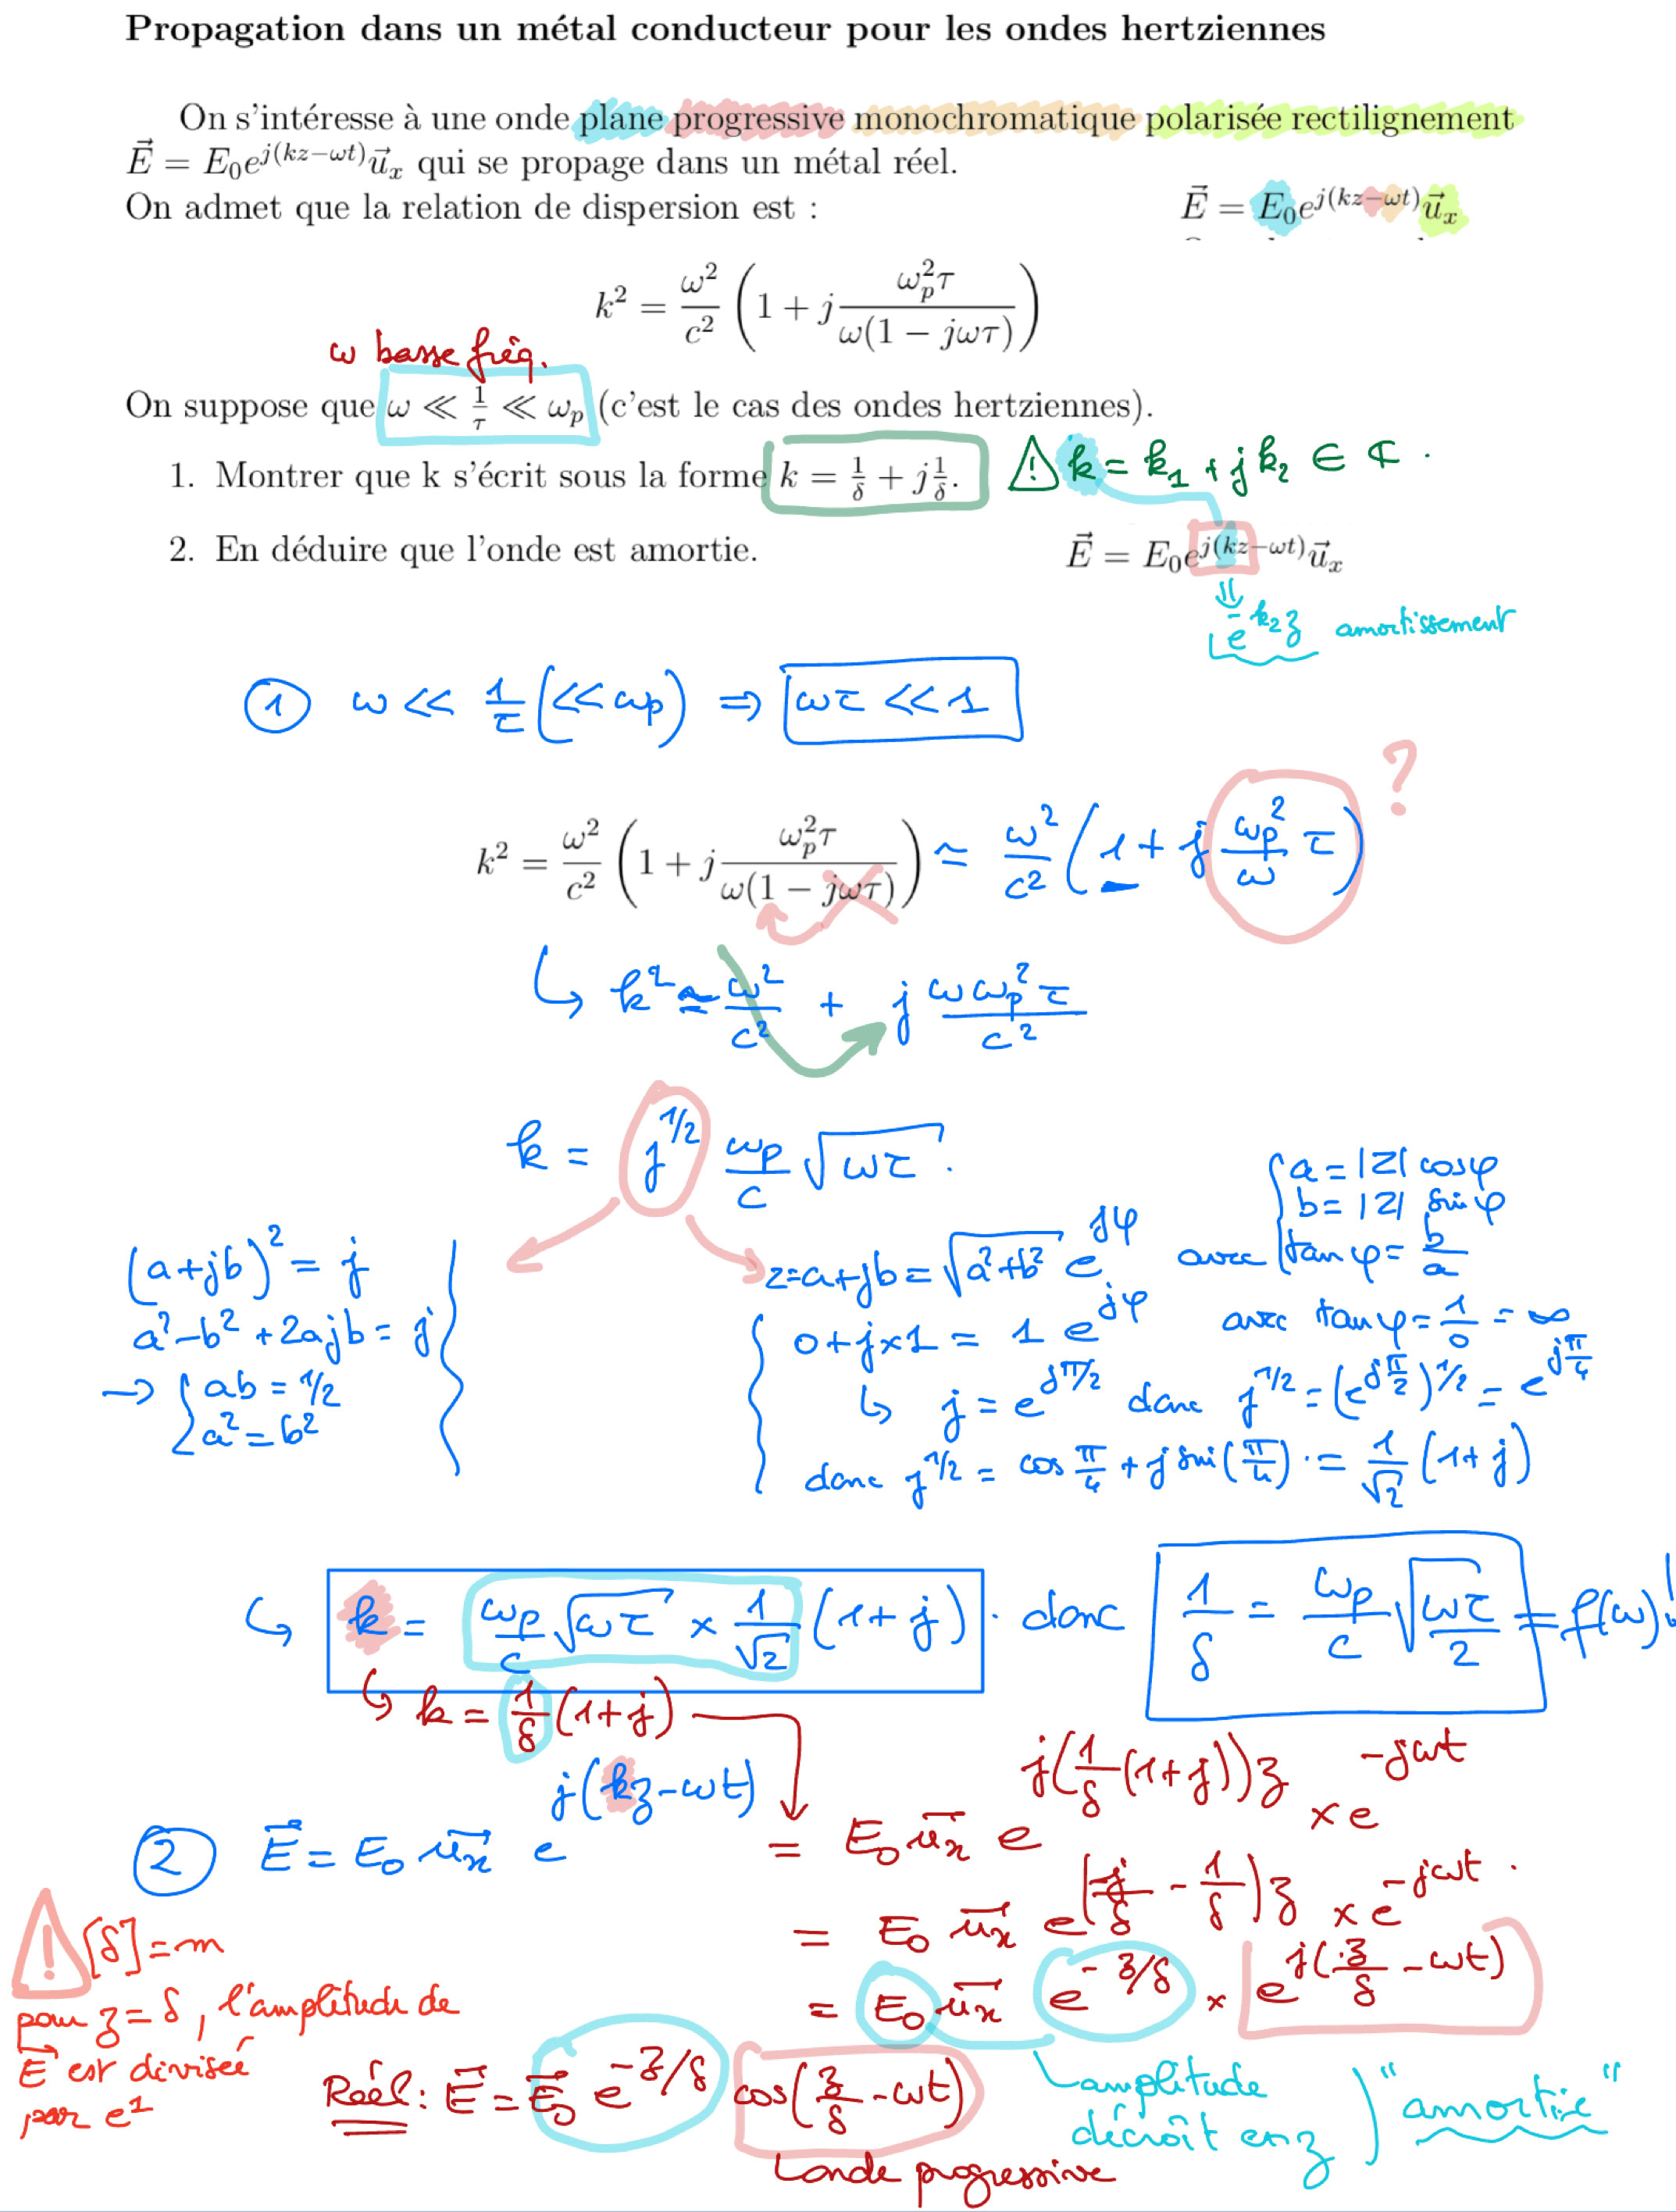 Propagation dans un métal conducteur pour les ondes hertziennes
On s'intéresse à une onde plane progressive monochromatique polarisée rectilignement
$\vec{E} = E_0 e^{j(kz-\omega t)} \vec{u}_x$ qui se propage dans un métal réel.
On admet que la relation de dispersion est :
$\vec{E} = E_0 e^{j(kz-\omega t)} \vec{u}_x$
$k^2 = \frac{\omega^2}{c^2} \left( 1 + j \frac{\omega_p^2 \tau}{\omega(1 - j\omega\tau)} \right)$
ω basse fréq.
On suppose que $\omega \ll \frac{1}{\tau} \ll \omega_p$ (c'est le cas des ondes hertziennes).
1. Montrer que k s'écrit sous la forme $k = \frac{1}{\delta} + j\frac{1}{\delta}$.
⚠ k = k₁ + j k₂ ∈ ℂ.
2. En déduire que l'onde est amortie.
$\vec{E} = E_0 e^{j(kz-\omega t)} \vec{u}_x$
$e^{-k_2 z}$ amortissement
① $\omega \ll \frac{1}{\tau} (\ll \omega_p) \Rightarrow \omega\tau \ll 1$
?
$k^2 = \frac{\omega^2}{c^2} \left( 1 + j \frac{\omega_p^2 \tau}{\omega(1 - j\omega\tau)} \right) \simeq \frac{\omega^2}{c^2} \left( 1 + j \frac{\omega_p^2}{\omega} \tau \right)$
↳ $k^2 \simeq \frac{\omega^2}{c^2} + j \frac{\omega \omega_p^2 \tau}{c^2}$
$k = j^{1/2} \frac{\omega_p}{c} \sqrt{\omega\tau}$.
$(a+jb)^2 = j$
$a^2 - b^2 + 2ajb = j$
→ { ab = 1/2
a² = b²
{ a = |z| cos φ
b = |z| sin φ
$z = a+jb = \sqrt{a^2+b^2}\, e^{j\varphi}$ avec $\tan\varphi = \frac{b}{a}$
$0 + j \times 1 = 1\, e^{j\varphi}$ avec $\tan\varphi = \frac{1}{0} = \infty$
↳ $j = e^{j\pi/2}$ donc $j^{1/2} = (e^{j\frac{\pi}{2}})^{1/2} = e^{j\frac{\pi}{4}}$
donc $j^{1/2} = \cos\frac{\pi}{4} + j \sin(\frac{\pi}{4}) = \frac{1}{\sqrt{2}} (1+j)$
↳ $k = \frac{\omega_p}{c} \sqrt{\omega\tau} \times \frac{1}{\sqrt{2}} (1+j)$. donc $\frac{1}{\delta} = \frac{\omega_p}{c} \sqrt{\frac{\omega\tau}{2}} = f(\omega)!$
↳ $k = \frac{1}{\delta} (1+j)$
② $\vec{E} = E_0 \vec{u_x} e^{j(kz-\omega t)} = E_0 \vec{u_x} e^{j(\frac{1}{\delta}(1+j))z} \times e^{-j\omega t}$
$= E_0 \vec{u_x} e^{(\frac{j}{\delta} - \frac{1}{\delta})z} \times e^{-j\omega t}$.
$= E_0 \vec{u_x} e^{-z/\delta} \times e^{j(\frac{z}{\delta} - \omega t)}$
⚠ [δ] = m
pour z = δ, l'amplitude de
$\vec{E}$ est divisée
par e¹
Réel : $\vec{E} = \vec{E_0} e^{-z/\delta} \cos(\frac{z}{\delta} - \omega t)$
onde progressive
amplitude
décroît en z
" amortie "